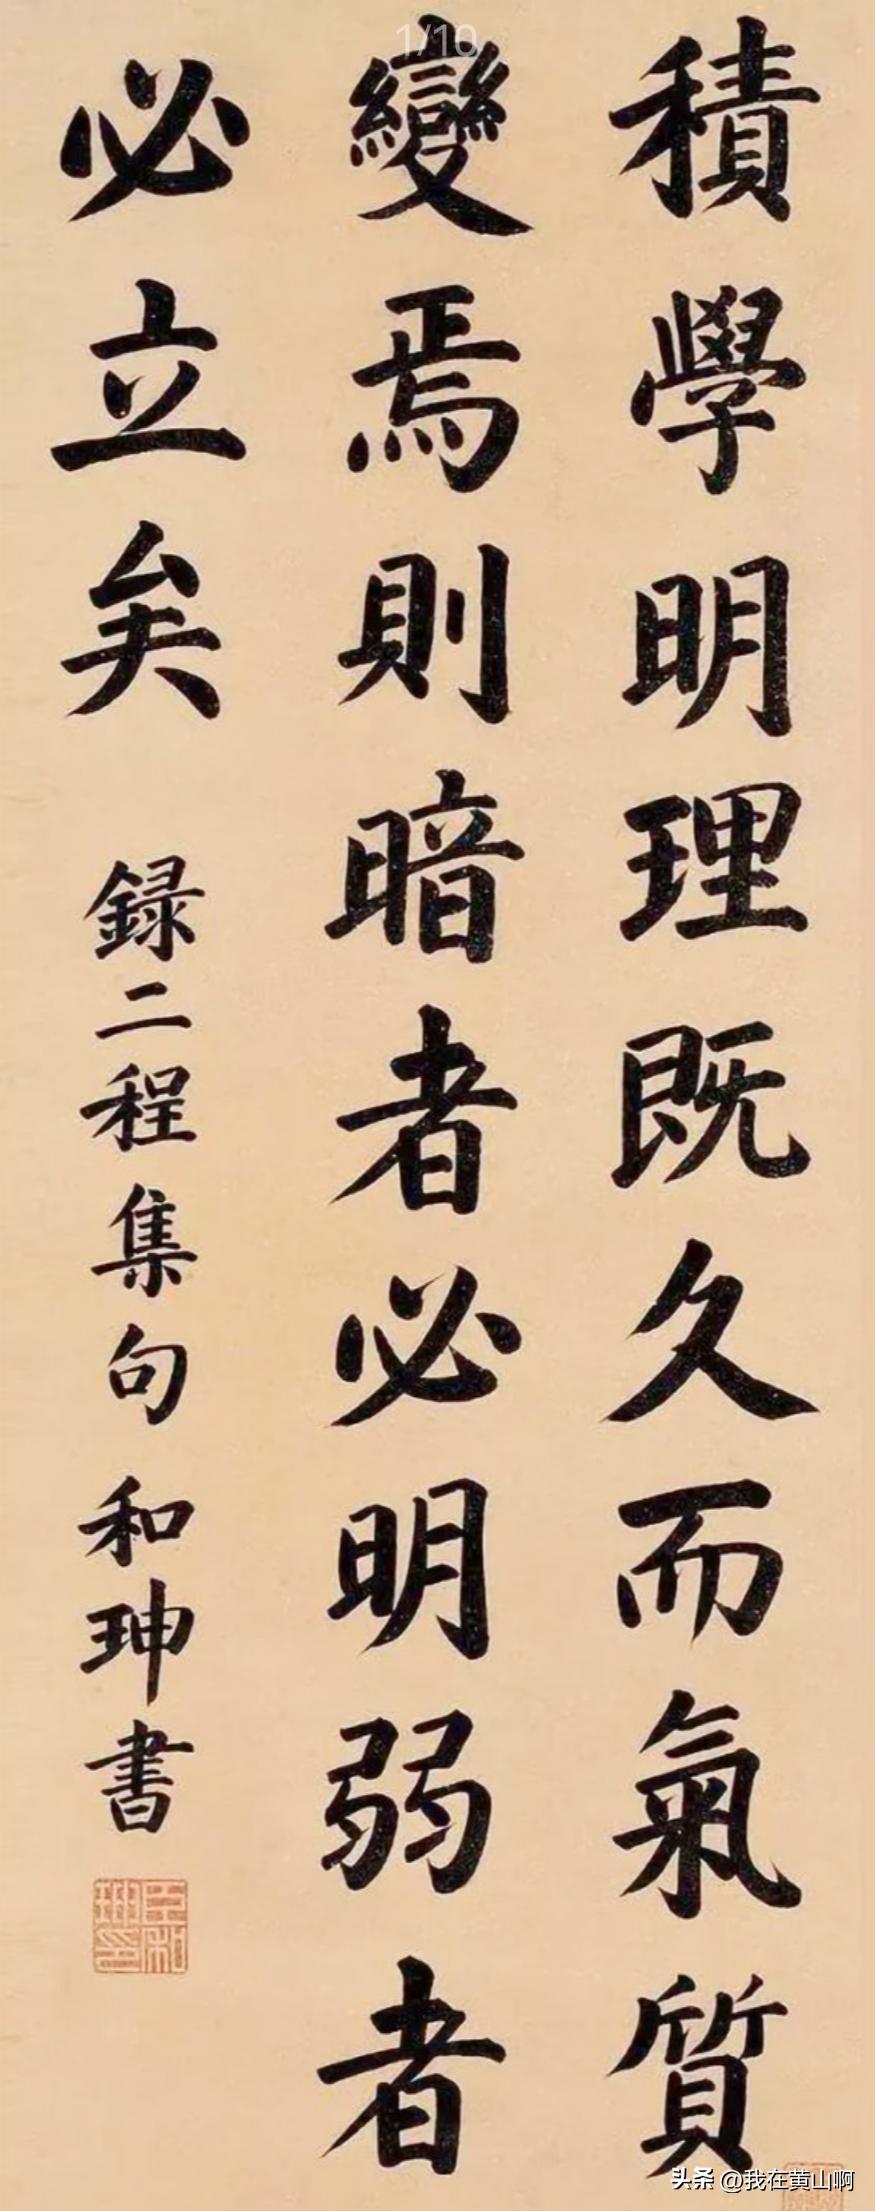 積學明理既久而氣質
變焉則暗者必明弱者
必立矣
録二程集句 和珅書
1/10
头条 @我在黄山啊